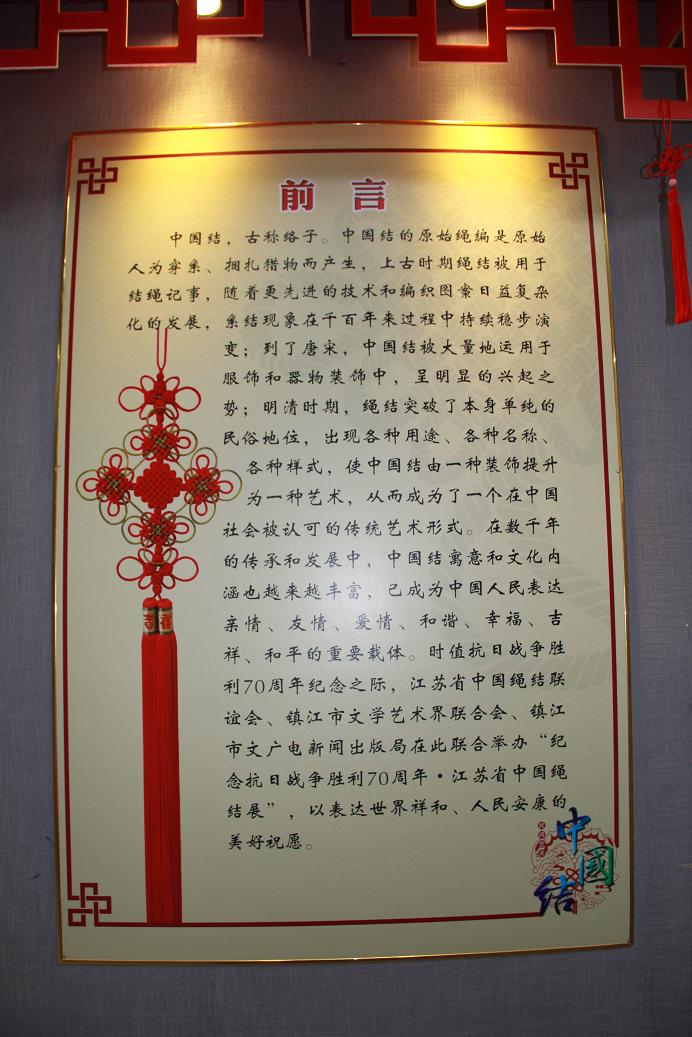 前言
中国结，古称络子。中国结的原始绳编是原始
人为穿系、捆扎猎物而产生，上古时期绳结被用于
结绳记事，随着更先进的技术和编织图案日益复杂
化的发展，系结现象在千百年来过程中持续稳步演
变；到了唐宋，中国结被大量地运用于
服饰和器物装饰中，呈明显的兴起之
势；明清时期，绳结突破了本身单纯的
民俗地位，出现各种用途、各种名称、
各种样式，使中国结由一种装饰提升
为一种艺术，从而成为了一个在中国
社会被认可的传统艺术形式。在数千年
的传承和发展中，中国结寓意和文化内
涵也越来越丰富，已成为中国人民表达
亲情、友情、爱情、和谐、幸福、吉
祥、和平的重要载体。时值抗日战争胜
利70周年纪念之际，江苏省中国绳结联
谊会、镇江市文学艺术界联合会、镇江
市文广电新闻出版局在此联合举办“纪
念抗日战争胜利70周年·江苏省中国绳
结展”，以表达世界祥和、人民安康的
美好祝愿。
吉祥
中國结